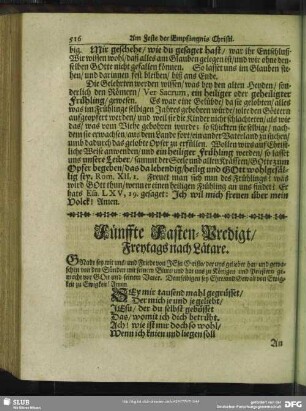 516 Am Feste der Empfängnis Christi.
big. Mir geschehe/ wie du gesaget hast/ war ihr Entschluß.
Wir wissen wohl/ daß alles am Glauben gelegen ist/ und wie ohne den-
selben GOtte nicht gefallen können. So lasset uns im Glauben ste-
hen/ und darinnen fest bleiben/ biß ans Ende.
Die Gelehrten werden wissen/ was bey den alten Heyden/ son-
derlich den Römern/ Ver Sacrum, ein heiliger oder geheiligter
Frühling/ gewesen. Es war eine Gelübde/ da sie gelobten/ alles
was im Frühlinge selbigen Jahres gebohren würde/ solte den Göttern
aufgeopfert werden/ und weil sie die Kinder nicht schlachteten/ als wie
das/ was vom Viehe gebohren wurde: so schickten sie selbige/ nach-
dem sie erwachsen/ aus dem Lande fort/ ein ander Land zu suchen/
und dadurch das gelobte Opfer zu erfüllen. Wollen wir aus Christ-
liche Weise annehmen/ und ein heiliger Frühling werden/ so lasset
uns unsere Leiber/ sammt der Seele und allen Kräfften/ GOtte zum
Opfer begeben/ das da lebendig/ heilig und GOtt wohlgefäl-
lig sey. Rom. XII, 1. Freuet man sich nun des Frühlings? was
wird GOtt thun/ wenn er einen heiligen Frühling an uns findet? Er
hats Es. LXV, 19. gesaget: Ich wil mich freuen über mein
Volck! Amen.
Fünffte Fasten-Predigt/
Freytags nach Lätare.
GNade sey mit uns/ und Friede von JEsu Christo/ der uns geliebet hat/ und gewa-
schen von den Sünden mit seinem Blute/ und hat uns zu Königen und Priestern ge-
macht vor GOtt und seinem Vater. Demselbigen sey Ehre und Gewalt von Ewig-
keit zu Ewigkeit/ Amen.
SEy mir tausend mahl gegrüsset/
Der mich je und je geliebt/
JEsu/ der du selbst gebüsset
Das/ womit ich dich betrübt.
Ach! wie ist mir doch so wohl/
Wenn ich knien und liegen soll
An
SLUB
DFG